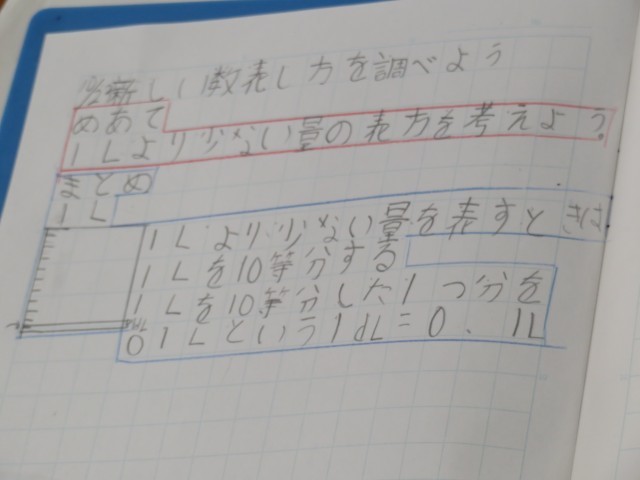 新しい数表し方を調べよう
めあて
1Lより少ない量の表方を考えよう。
まとめ
1L
1Lより少ない量を表すときは
1Lを10等分する
1Lを10等分した1つ分を
01Lという1dL=0.1L